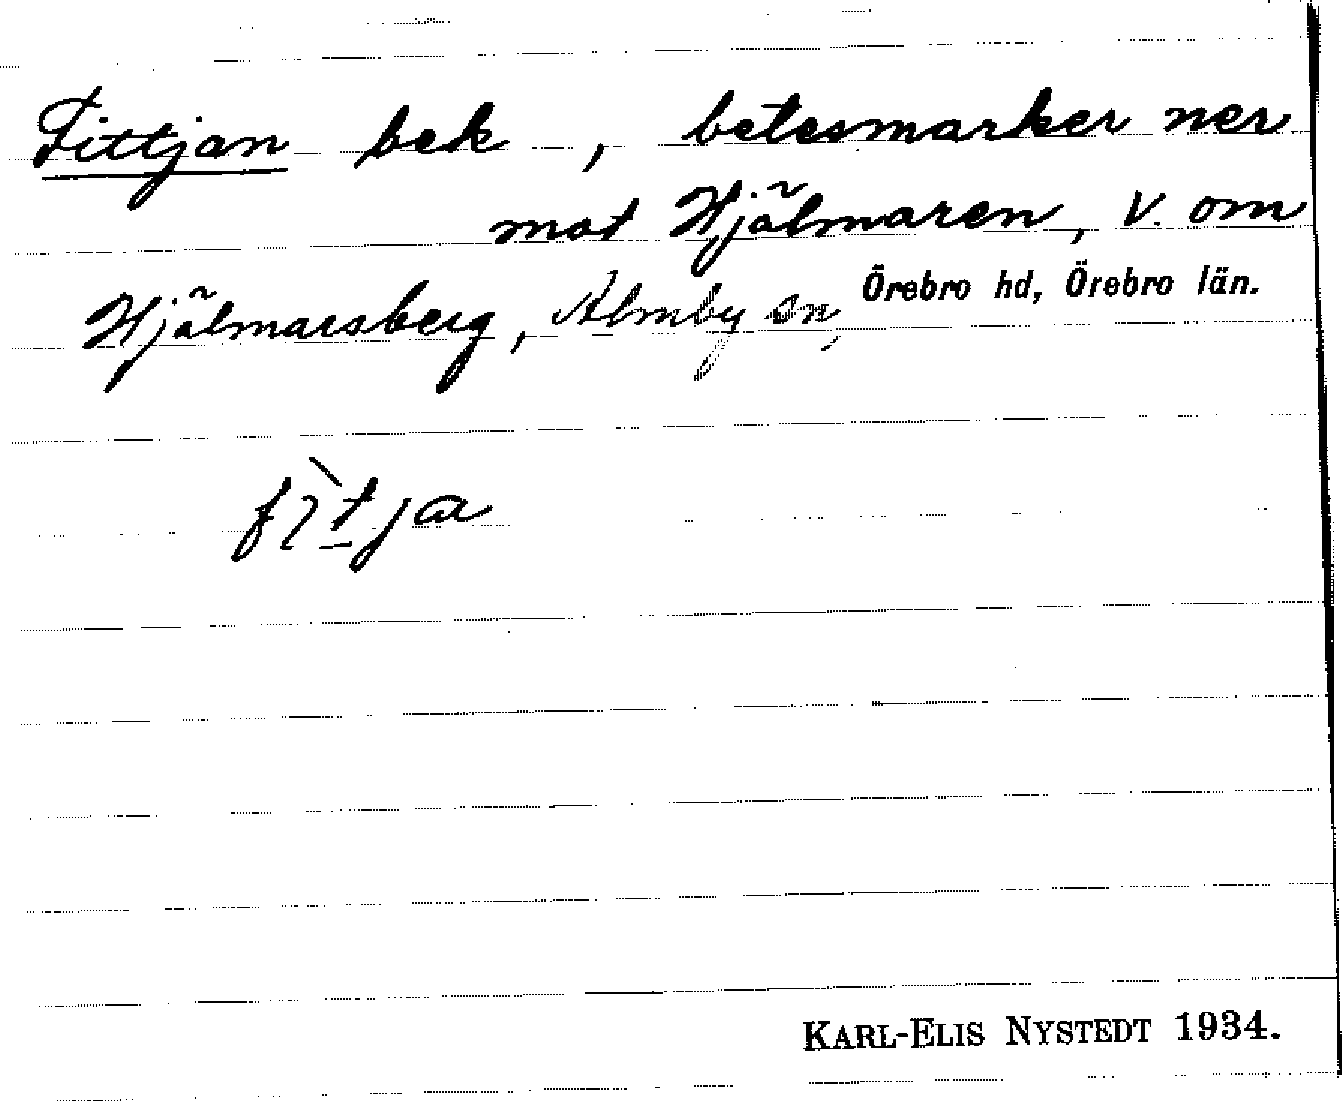 Fittjan bek, betesmarker ner
mot Hjälmaren, V. om
Hjälmarsberg, Almby sn, Örebro hd, Örebro län.
fìtja
KARL-ELIS NYSTEDT 1934.